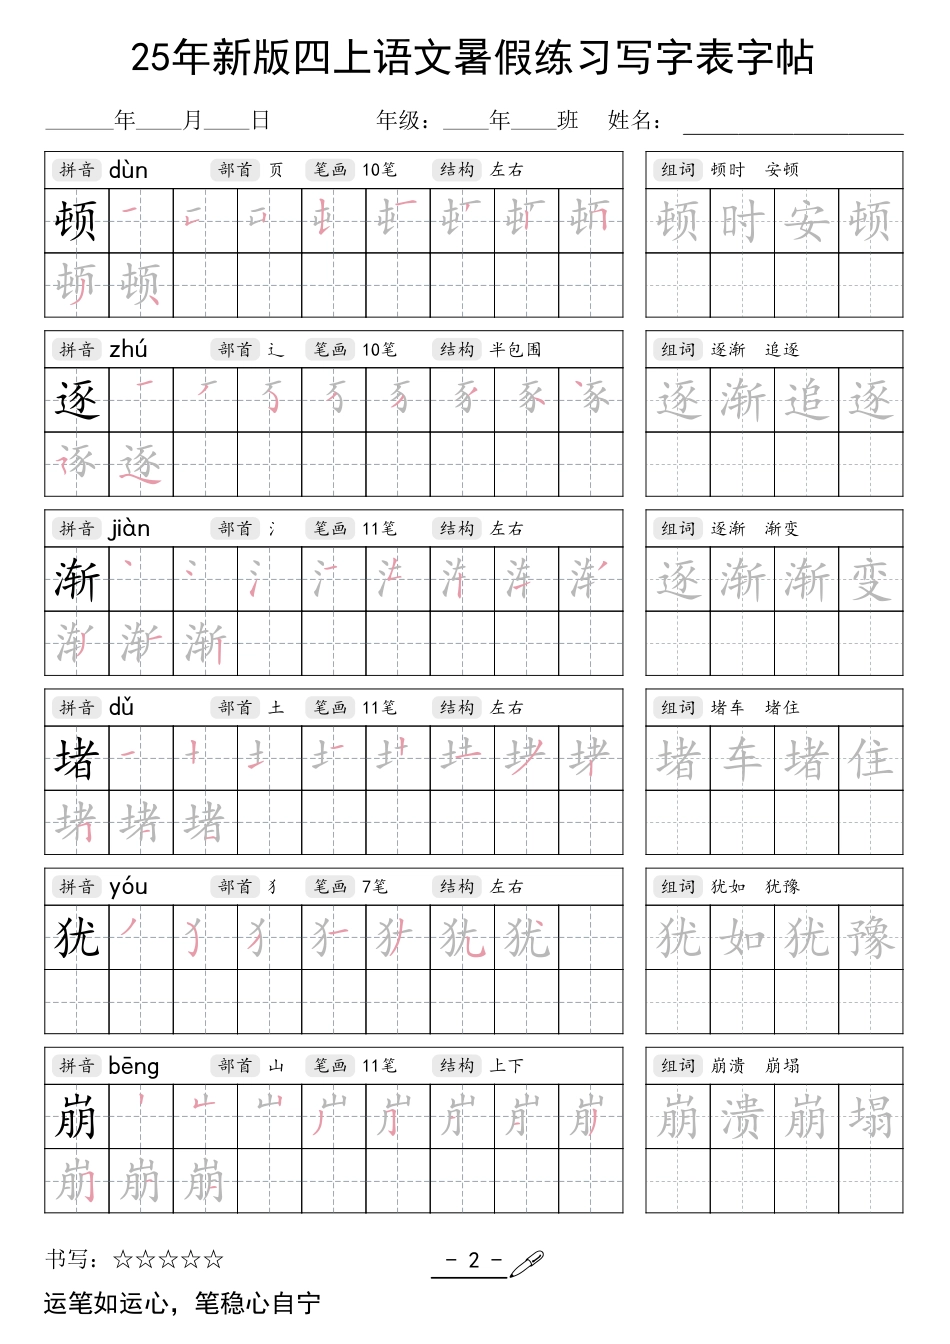 25年新版四上语文暑假练习写字表字帖
______年____月____日 年级：____年____班 姓名：
拼音 dùn 部首 页 笔画 10笔 结构 左右 组词 顿时 安顿
顿 顿时安顿
顿 顿
拼音 zhú 部首 辶 笔画 10笔 结构 半包围 组词 逐渐 追逐
逐 逐渐追逐
逐
拼音 jiàn 部首 氵 笔画 11笔 结构 左右 组词 逐渐 渐变
渐 逐渐渐变
渐 渐
拼音 dǔ 部首 土 笔画 11笔 结构 左右 组词 堵车 堵住
堵 堵车堵住
堵 堵
拼音 yóu 部首 犭 笔画 7笔 结构 左右 组词 犹如 犹豫
犹 犹 犹如犹豫
拼音 bēng 部首 山 笔画 11笔 结构 上下 组词 崩溃 崩塌
崩 崩溃崩塌
崩 崩 崩
书写：☆☆☆☆☆ - 2 -
运笔如运心，笔稳心自宁